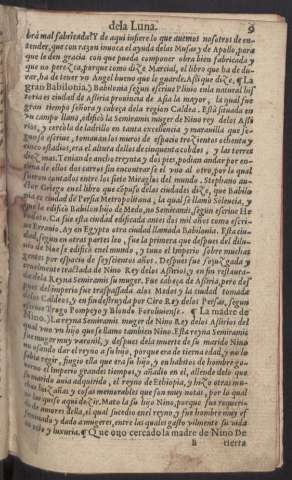 dela Luna. 9
brá mal fabricada? Y de aqui infiere lo que auemos nosotros de en-
tender, que con razon inuoca el ayuda delas Musas y de Apollo, para
que le den gracia con que pueda componer obra bien fabricada y
que no perezca, porque como dize Marcial, el libro que ha de du-
rar, ha de tener vn Angel bueno que le guarde. Assi que dize. ¶ La
gran Babilonia, y Babilonia segun escriue Plinio enla natural his
toria es ciudad de Assiria prouincia de Asia la mayor, la qual fue
gran tiempo señora y cabeça dela region Caldea. Está situada en
vn campo llano, edificóla Semiramis muger de Nino rey delos Assi
rios, y cercóla de ladrillo en tanta excellencia y marauilla que se-
gun se escriue, tomauan los muros de espacio trezientos ochenta y
cinco estadios, era el altura dellos de cinquenta cobdos, y las torres
diez mas. Tenian de ancho treynta y dos pies, podian andar por en-
cima de ellos dos carros sin encontrarse el vno al otro, por lo qual
fueron cantados entre los siete Miraglos del mundo. Stephano au-
ctor Griego enel libro que cópuso delas ciudades dize, que Babilo
nia es ciudad de Persia Metropolitana, la qual se llamó Seleucia, y
que la edificó Babilon hijo de Medo, no Semiramis, segun escriue He
rodoto. Ca fue esta ciudad edificada antes dos mil años como escri-
ue Errenio. Ay en Egypto otra ciudad llamada Babilonia. Esta ciu-
dad, segun en otras partes leo, fue la primera que despues del dilu-
uio de Noe se edificó enel mundo, y tuuo el Imperio sobre muchas
gentes por espacio de seyscientos años. Despues fue sojuzgada y
cruelmente tractada de Nino Rey delos Assirios, y en fin restaura-
da dela Reyna Semiramis su muger. Fue cabeça de Assiria, pero des
pues del imperio fue traspassada alos Medos y la ciudad tomada
delos Caldeos, y en fin destruyda por Ciro Rey delos Persas, segun
Iustino Trogo Pompeyo y Blondo Foroliuiense. ¶ La madre de
Nino. La reyna Semiramis muger de Nino Rey delos Assirios del
qual vuo vn hijo que se llamo tambien Nino. Esta reyna Semiramis
fue muger muy varonil, y despues dela muerte de su marido Nino
no osando dar el reyno a su hijo, porque era de tierna edad y no lo
sabia regir, fugio ella que era su hijo, y en habitos de hombre go-
uernó el Imperio grandes tiempos, y añadio en el, allende delo que
su marido auia adquirido, el reyno de Ethiopia, y hizo otras mu-
chas hazañas y cosas memorables que son muy notas, por lo qual
no las quise aqui dezir. Mato la su hijo Nino, porque fue requeri-
do de amores della, el qual sucedio enel reyno, y fue hombre muy af
feminado y dado a mugeres, entre las quales gasto vilmente su vida
en ocio y luxuria. ¶ Que ouo cercado la madre de Nino De
B cierta